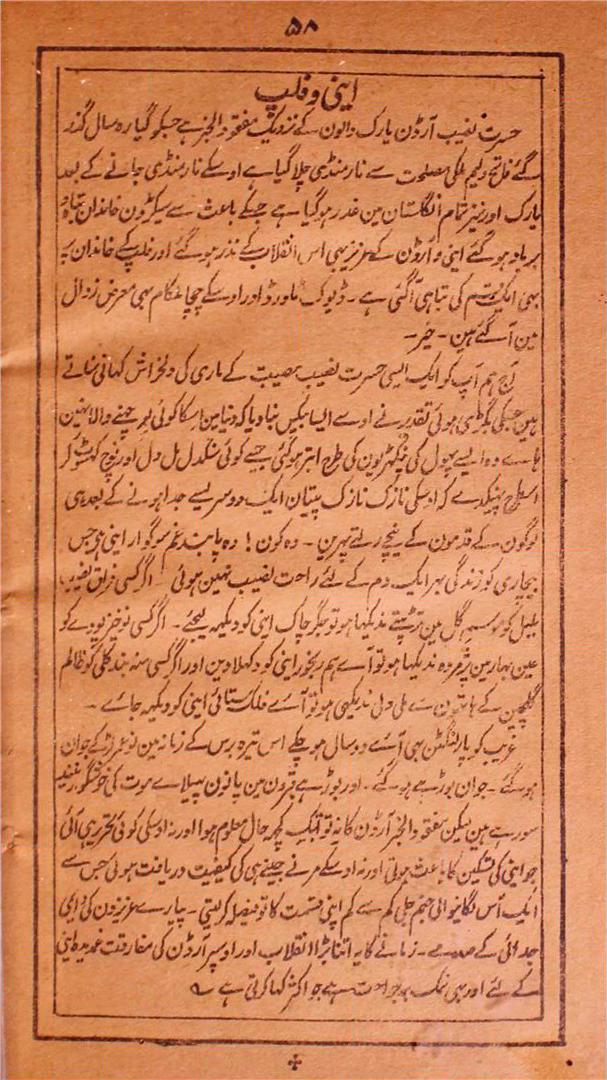 ۵۸
اینی و فلپ
حسرت نصیب آرڈن یارک والون کے نزدیک مفقود الخبر ہے جسکو گیارہ سال گذر
گئے فاتح ولیم ملکی مصلحت سے نارمنڈی چلا گیا ہے اوسکے نارمنڈی جانے کے بعد
یارک اور نیز تمام انگلستان مین غدر ہو گیا ہے جسکے باعث سے سیکڑون خاندان تباہ و
برباد ہو گئے اینی و آرڈن کے عزیز بھی اس انقلاب کے نذر ہو گئے اور فلپ کے خاندان پہ
بھی ایک قسم کی تباہی آ گئی ہے ۔ ڈیوک اور اوسکے چچا بھی معرض زوال
مین آ گئے ہین ۔ خیر ۔
آج ہم آپ کو ایک ایسی حسرت نصیب مصیبت کے ماری کی دلخراش کہانی سناتے
ہین جسکی بگڑی ہوئی تقدیر نے اوسے ایسا بیکس بنا دیا کہ دنیا مین اسکا کوئی پوچھنے والا نہین
ہاے وہ ایسے پھول کی پنکھڑیون کی طرح ابتر ہو گئی جسے کوئی سنگدل مل دل اور نوچ کھسوٹ کر
اسطرح پھینکدے کہ اوسکی نازک نازک پتیان ایک دوسریسے جدا ہونے کے بعد ہی
لوگون کے قدمون کے نیچے رلتے پھرین ۔ وہ کون ! وہ پابند غم سوگوار اینی ہی جس
بیچاری کو زندگی بھر ایک دم کے لئے راحت نصیب نہین ہوئی اگر کسی فراق نصیب
بلبل کو موسم گل مین تڑپتے ندیکھا ہو تو جگر چاک اینی کو دیکھہ لیجئے ۔ اگر کسی نوخیز پودے کو
عین بہار مین پژمردہ ندیکھا ہو تو آے ہم رنجور اینی کو دکھلا دین اور اگر کسی منہ بند کلی کو ظالم
گلچین کے ہاتھون سے ملی دلی ندیکھی ہو تو آے فلک ستائی اینی کو دیکھہ جاے ۔
غریب کو پارلنگٹن بھی آے دو سال ہو چکے اس تیرہ برس کے زمانہ مین نوعمر لڑکے جوان
ہو گئے ۔ جوان بوڑھے ہو گئے ۔ اور بوڑھے قبرون مین پانون پھیلاے موت کی خوشگوار نیند
سو رہے ہین لیکن مفقود الخبر آرڈن کا یہ نہ تو ابتک کچھ حال معلوم ہوا اور نہ اوسکی کوئی تحریر ہی آئی
جو اینی کی تسکین کا باعث ہوتی اور نہ اوسکے مرنے جینے ہی کی کیفیت دریافت ہوئی جس سے
ایک آس لگانیوالی جنم جلی کم سے کم اپنی قسمت کا تو فیصلہ کر لیتی ۔ پیارے عزیزون کی دائمی
جدائی کے صدمے ۔ زمانے کا یہ اتنا بڑا انقلاب اور اوسپر آرڈن کی مفارقت غمدیدہ اینی
کے لئے اور بھی نمک بر جراحت ہے جو اکثر کہا کرتی ہے ؎